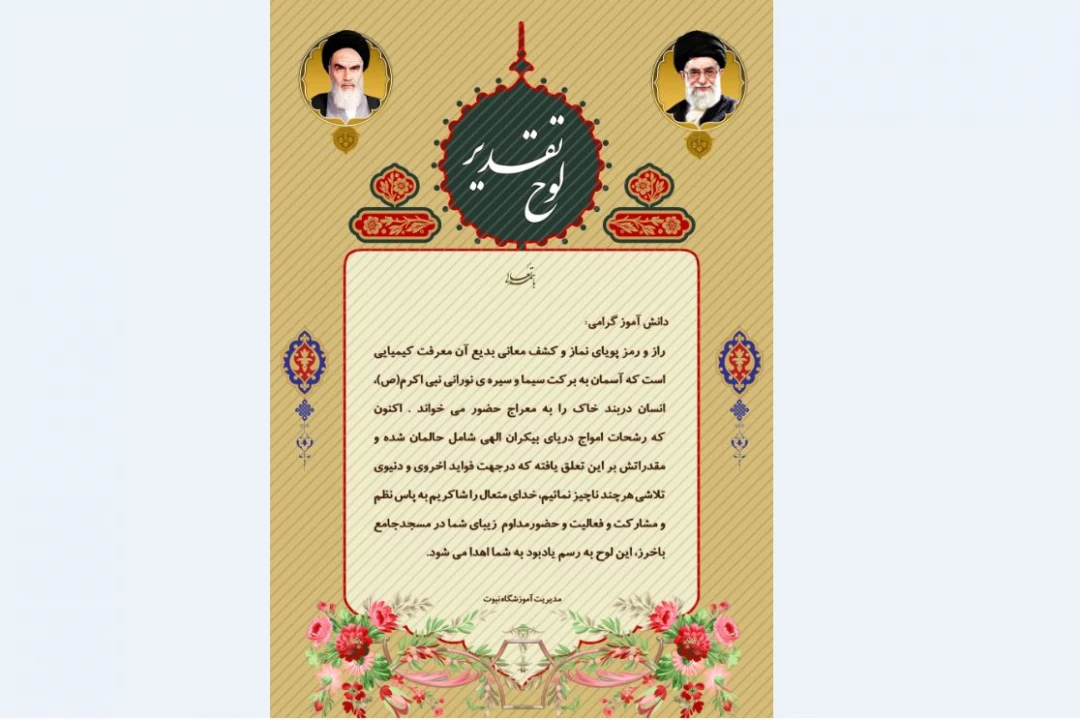 لوح تقدیر
باسمه تعالی
دانش آموز گرامی:
راز و رمز پویای نماز و کشف معانی بدیع آن معرفت کیمیایی
است که آسمان به برکت سیما و سیره ی نورانی نبی اکرم(ص)،
انسان دربند خاک را به معراج حضور می خواند . اکنون
که رشحات امواج دریای بیکران الهی شامل حالمان شده و
مقدراتش بر این تعلق یافته که درجهت فواید اخروی و دنیوی
تلاشی هرچند ناچیز نمائیم، خدای متعال را شاکریم به پاس نظم
و مشارکت و فعالیت و حضورمداوم زیبای شما در مسجدجامع
باخرز، این لوح به رسم یادبود به شما اهدا می شود.
مدیریت آموزشگاه نبوت